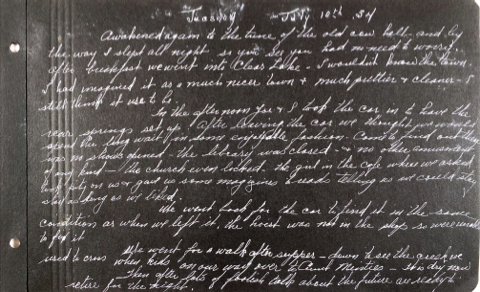 Tuesday - July 10th, 34
Awakened again to the tune of the old cow bell - and by
the way I slept all night so you see you had no need to worry.
After breakfast we went into Clear Lake - I wouldn't know the town.
I had imagined it as a much nicer town & much prettier & cleaner - I
still think it use to be.
In the afternoon & I took the car in to have the
rear springs set up. After leaving the car we thought we would
spend the long wait in some enjoyable fashion - Come to find out there
was no show opened - the library was closed - & no other amusement
of any kind - the church even locked. The girl in the cafe where we asked
took pity on us & gave us some magazines to read telling us we could stay
as long as we liked.
We went back for the car to find it in the same
condition as when we left it, the hoist was not in the shop so were unable
to fix it
We went for a walk after supper - down to see the creek we
used to cross when kids on our way over to Aunt - so dry now
Then after lots of foolish talk about the future are ready to
retire for the night.